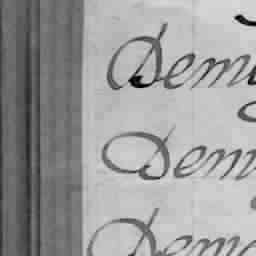 Dem
Dem
Dem